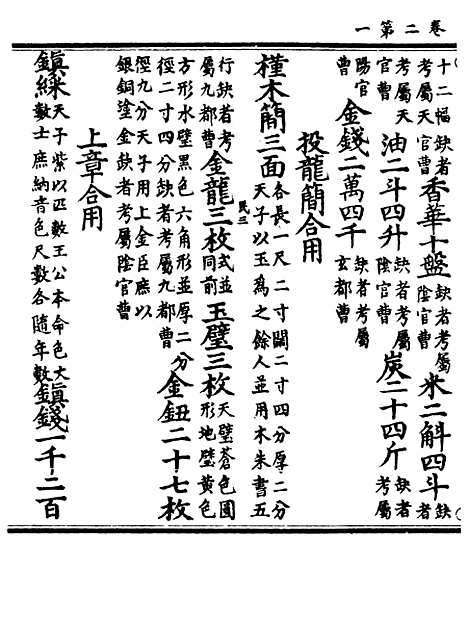 卷二第一
十二幅缺者考屬天官曹香華十盤缺者考屬陰官曹米二斛四斗缺者
考屬天官曹油二斗四升缺者考屬陰官曹炭二十四斤缺者考屬
陽官曹金錢二萬四千缺者考屬玄都曹
投龍簡合用
槿木簡三面各長一尺二寸闊二寸四分厚二分天子以玉為之餘人並用木朱書五
民三
行缺者考屬九都曹金龍三枚式並同前玉璧三枚天璧蒼色圓形地璧黃色
方形水璧黑色六角形並厚二分徑二寸四分缺者考屬九都曹金鈕二十七枚
徑九分天子用上金臣庶以銀銅塗金缺者考屬陰官曹
上章合用
鎮綵天子紫以匹數王公本命色大數士庶納音色尺數各隨年數鎮錢一千二百